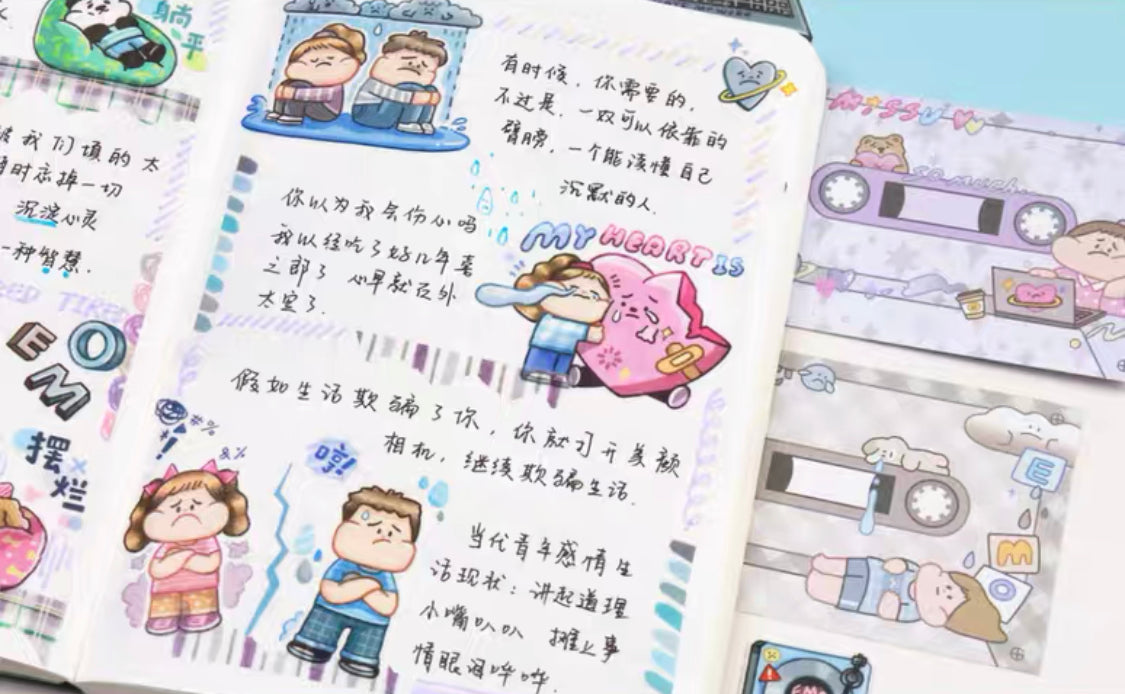 躺
平
被我们填的太
暂时忘掉一切
沉淀心灵
一种智慧.
RED TIRED
E O
M
摆
烂
有时候,你需要的,
不过是,一双可以依靠的
臂膀,一个能读懂自己
沉默的人.
你以为我会伤心吗
我以经吃了好几年喜
之郎了 心早就
太空了.
MY HEART IS
假如生活欺骗了你,你就打开美颜
相机,继续欺骗生活.
#%
&%
!
哼!
当代青年感情生
活现状:讲起道理
小嘴叭叭 摊上事
情眼泪哗哗.
MISS U
SO MUCH
E
M
O